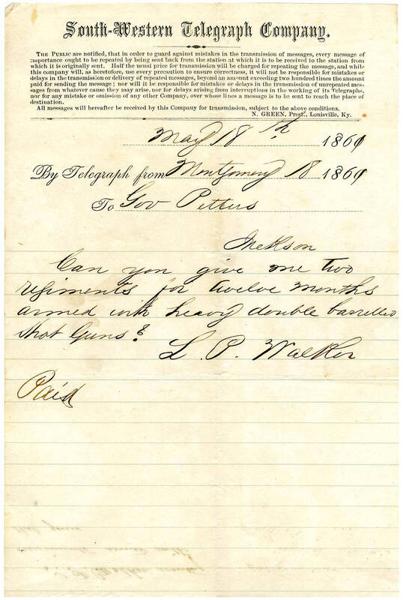 South-Western Telegraph Company.
THE PUBLIC are notified, that in order to guard against mistakes in the transmission of messages, every message of
importance ought to be repeated by being sent back from the station at which it is to be received to the station from
which it is originally sent. Half the usual price for transmission will be charged for repeating the message, and while
this company will, as heretofore, use every precaution to ensure correctness, it will not be responsible for mistakes or
delays in the transmission or delivery of repeated messages, beyond an amount exceeding two hundred times the amount
paid for sending the message; nor will it be responsible for mistakes or delays in the transmission of unrepeated mes-
sages from whatever cause they may arise, nor for delays arising from interruptions in the working of its Telegraphs,
nor for any mistake or omission of any other Company, over whose lines a message is to be sent to reach the place of
destination.
All messages will hereafter be received by this Company for transmission, subject to the above conditions.
N. GREEN, Prest., Louisville, Ky.
May 18th 1861
By Telegraph from Montgomery 18 1861
To Gov Pettus
Jackson
Can you give one two
regiments for twelve months
armed with heavy double barrelled
shot Guns?
L. P. Walker
Paid